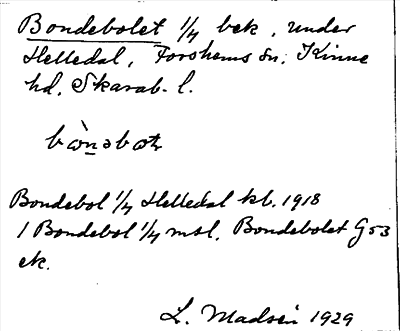 Bondebolet 1/4 bek, under
Helledal, Forshems sn, Kinne
hd, Skarab. l.
Bondebol 1/4 Helledal kb. 1918
1 Bondebol 1/4 msl. Bondebolet G 53
ek.
L. Madsén 1929